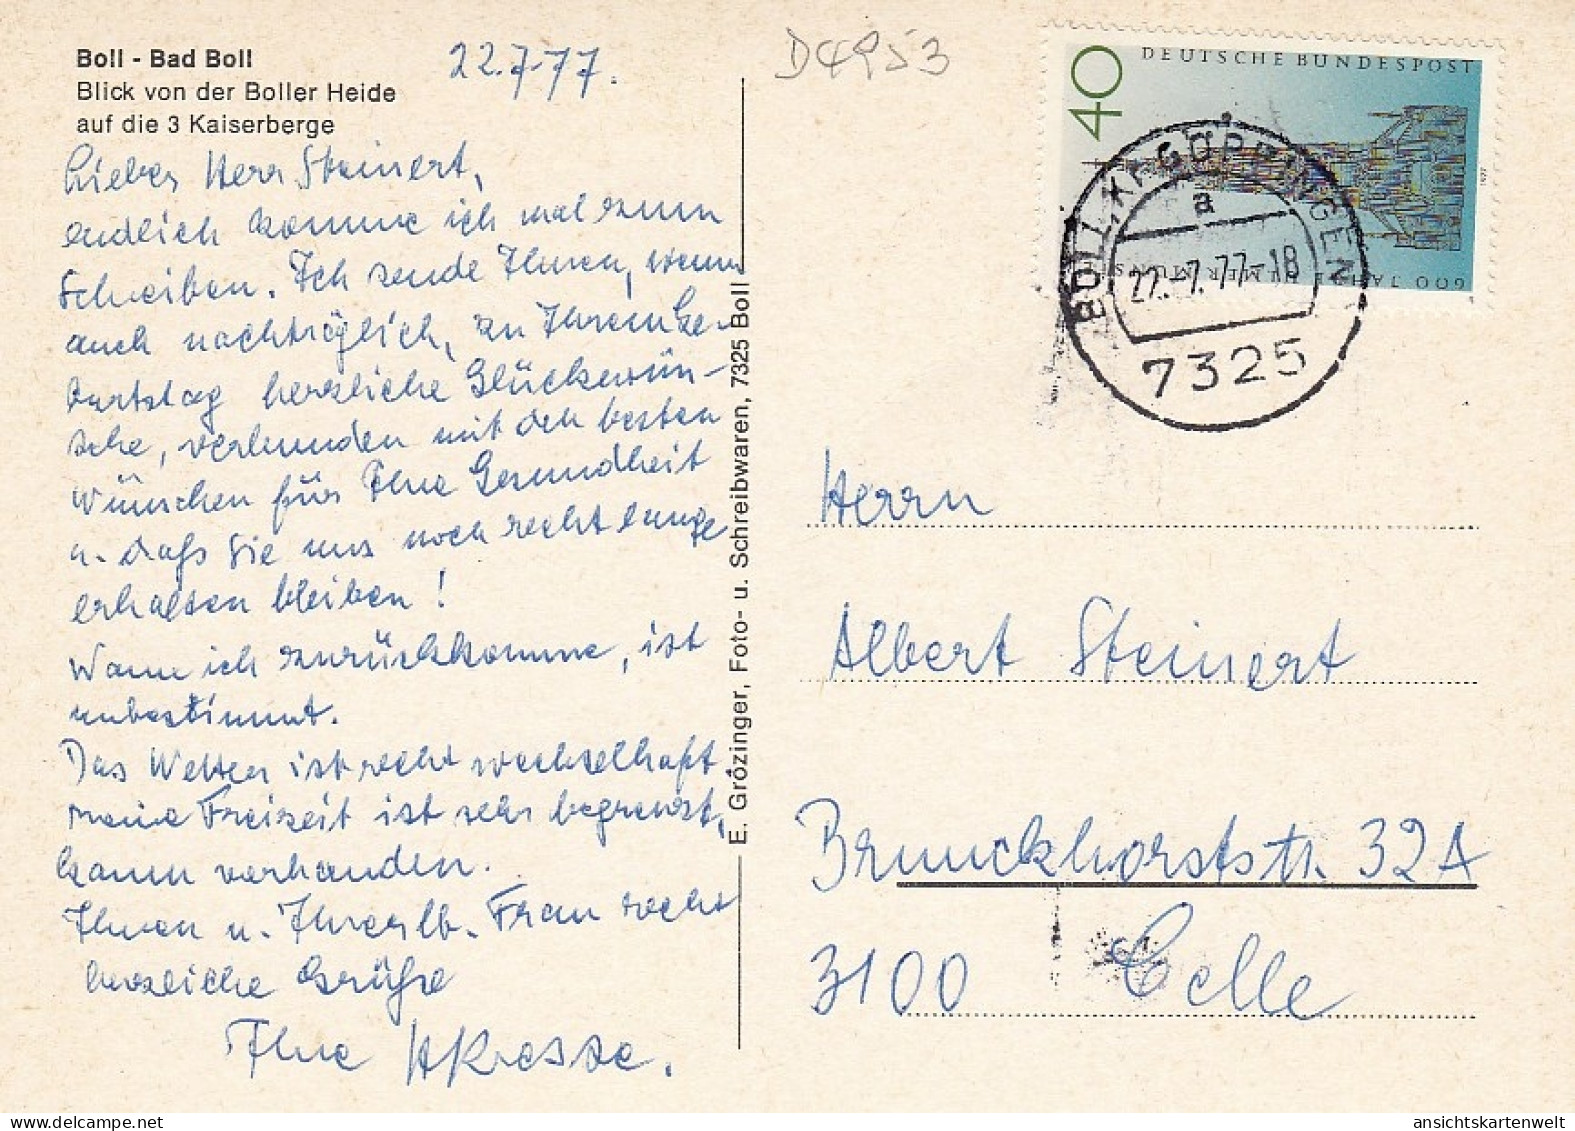 Boll - Bad Boll
Blick von der Boller Heide
auf die 3 Kaiserberge
22.7.77.
Lieber Herr Steinert,
endlich komme ich mal zum
Schreiben. Ich sende Ihnen, wenn
auch nachträglich, zu Ihrem Ge-
burtstag herzliche Glückwün-
sche, verbunden mit den besten
Wünschen für Ihre Gesundheit
u. daß Sie uns noch recht lange
erhalten bleiben!
Wann ich zurückkomme, ist
unbestimmt.
Das Wetter ist recht wechselhaft,
meine Freizeit ist sehr begrenzt,
kaum vorhanden.
Ihnen u. Ihrer lb. Frau recht
herzliche Grüße
Ihre HKresse.
E. Grözinger, Foto- u. Schreibwaren, 7325 Boll
D4953
DEUTSCHE BUNDESPOST
40
600 JAHRE ULMER MÜNSTER
1977
BOLL, KR GÖPPINGEN
a
22.-7.77-18
7325
Herrn
Albert Steinert
Brunckhorststr. 32A
3100 Celle
ansichtskartenwelt